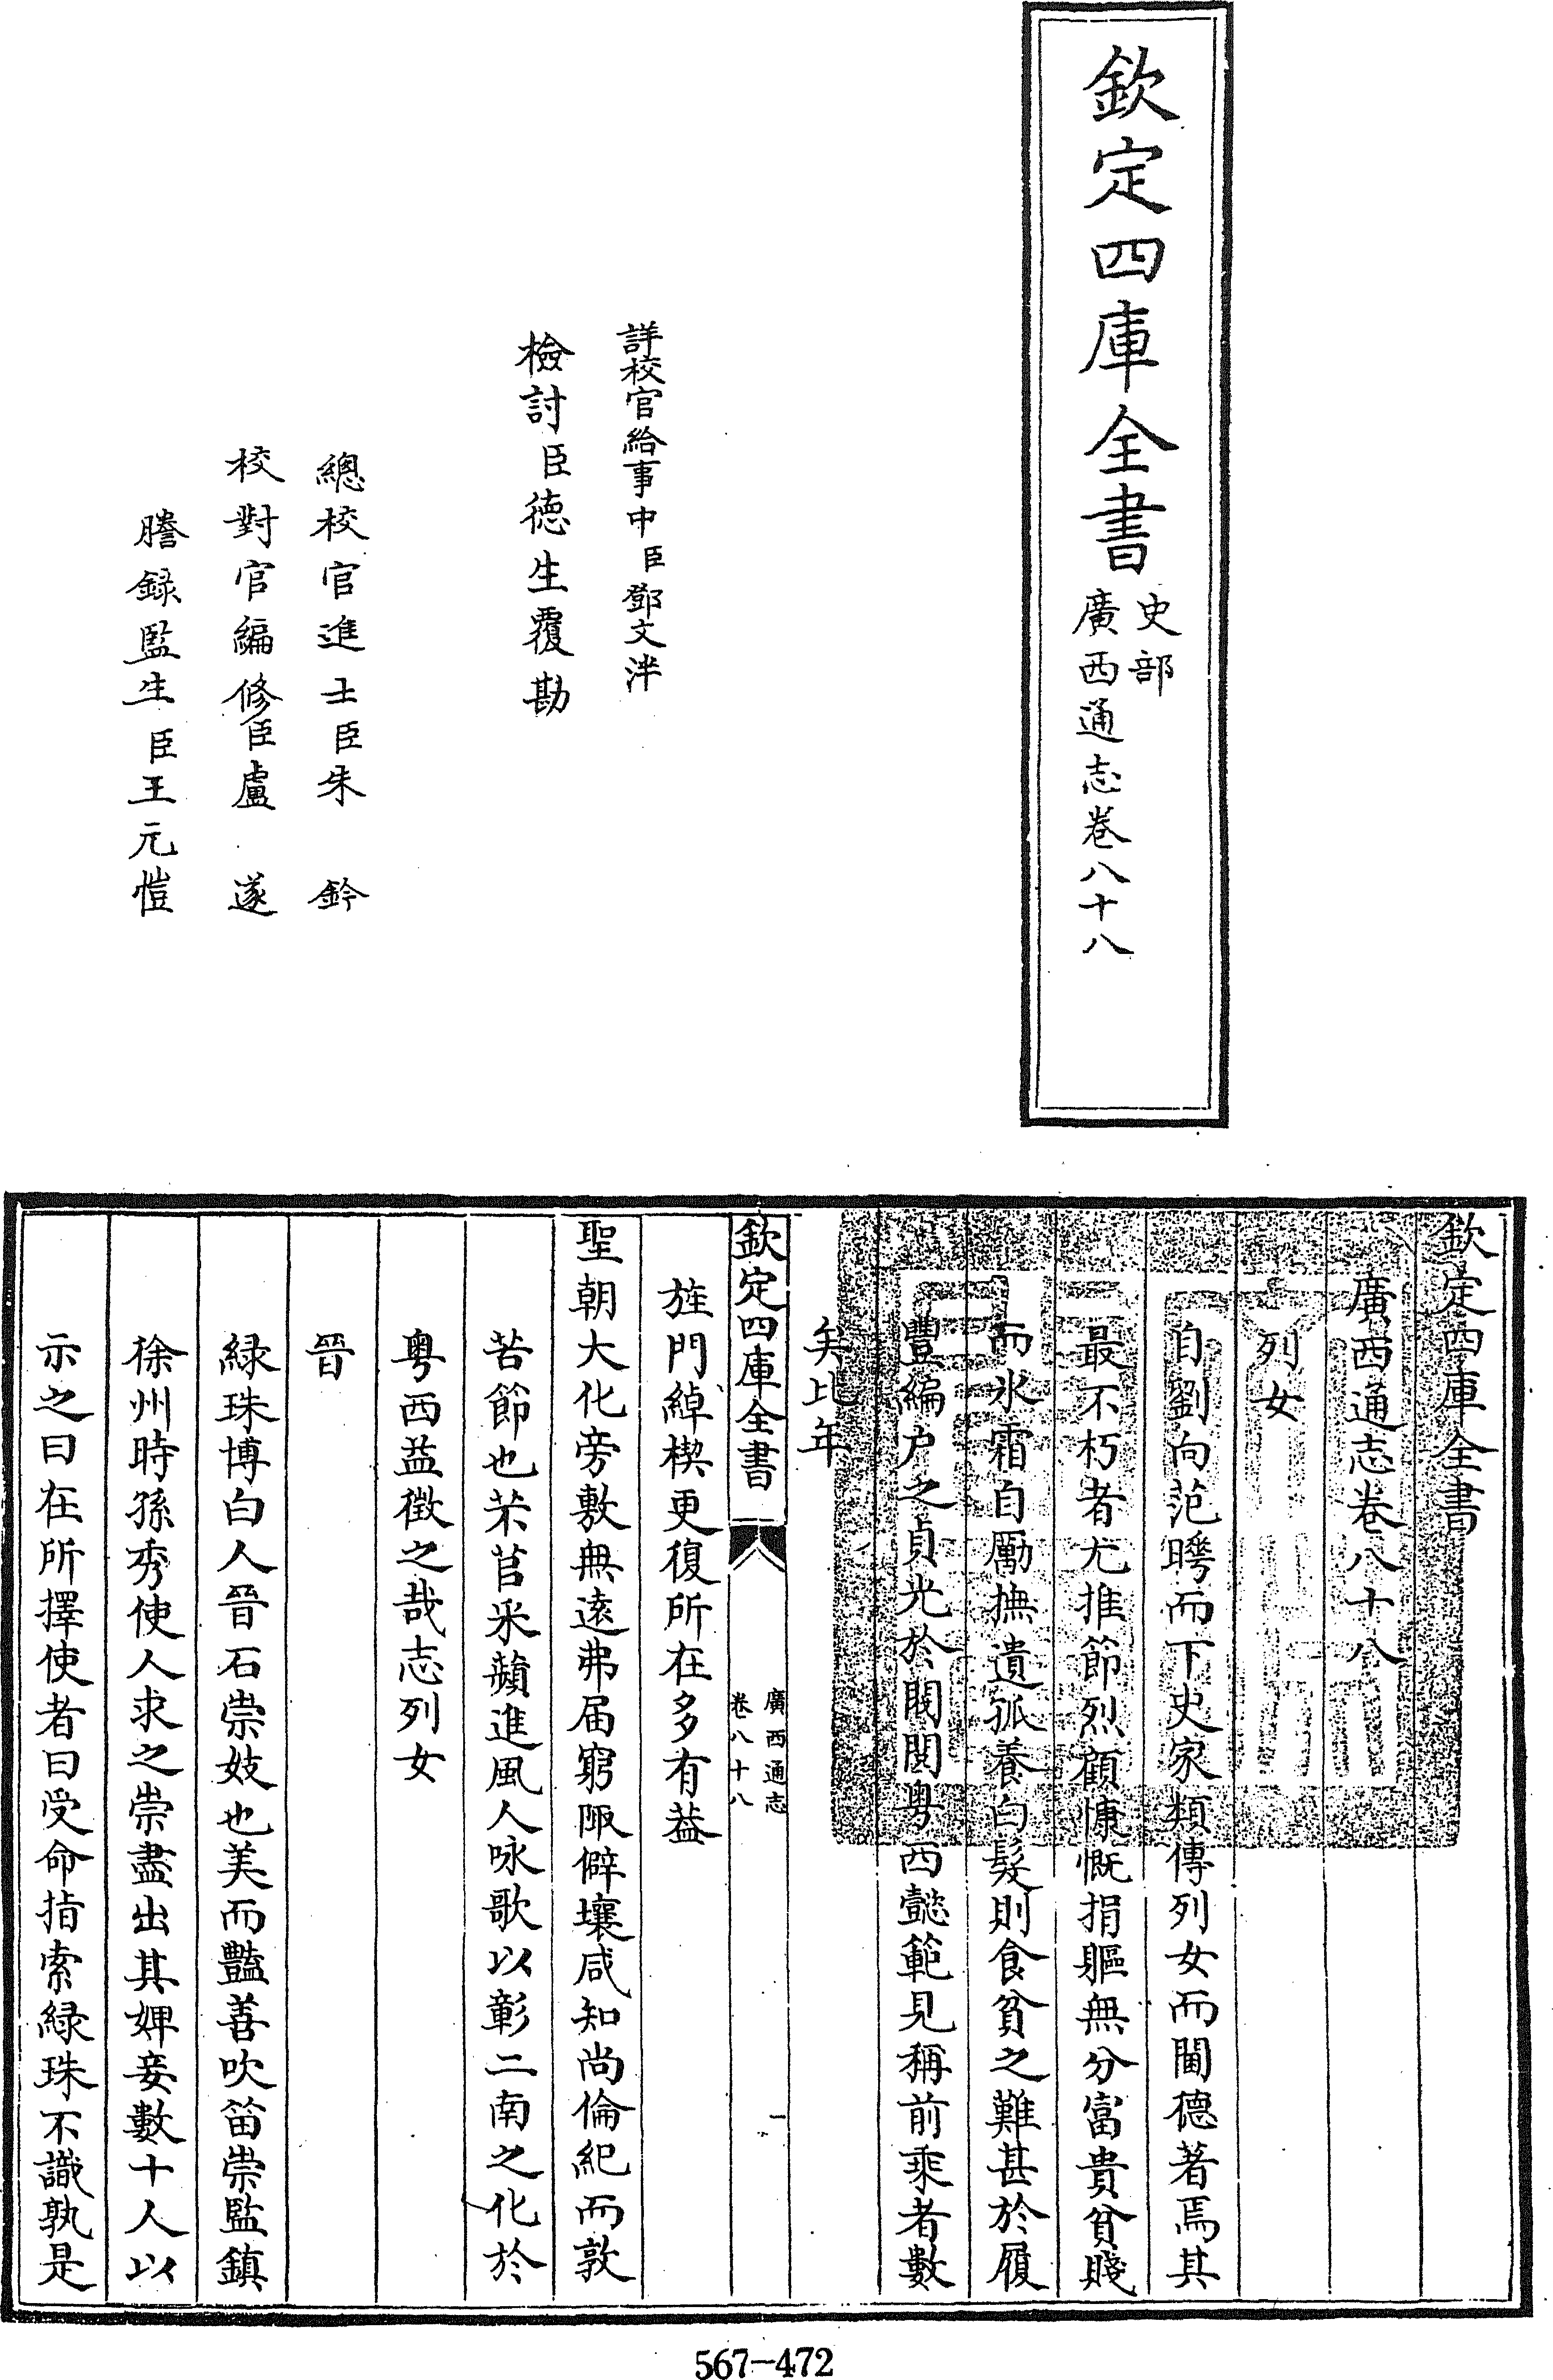 欽定四庫全書
史部
廣西通志卷八十八
詳校官給事中臣鄧文泮
檢討臣德生覆勘
總校官進士臣朱鈐
校對官編修臣盧遂
謄録監生臣王元愷
欽定四庫全書
廣西通志卷八十八
列女
自劉向范曄而下史家類傳列女而閫德著焉其
最不朽者尤推節烈顧慷慨捐軀無分富貴貧賤
而氷霜自勵撫遺孤養白髮則食貧之難甚於履
豐編户之貞光於閥閲粤西懿範見稱前乘者數
矣比年
欽定四庫全書
廣西通志
卷八十八
一
旌門綽楔更復所在多有葢
聖朝大化旁敷無遠弗届窮陬僻壤咸知尚倫紀而敦
苦節也芣苢采蘋進風人咏歌以彰二南之化於
粤西益徵之哉志列女
晉
緑珠博白人晉石崇妓也美而豔善吹笛崇監鎮
徐州時孫秀使人求之崇盡出其婢妾數十人以
示之曰在所擇使者曰受命指索緑珠不識孰是
567-472